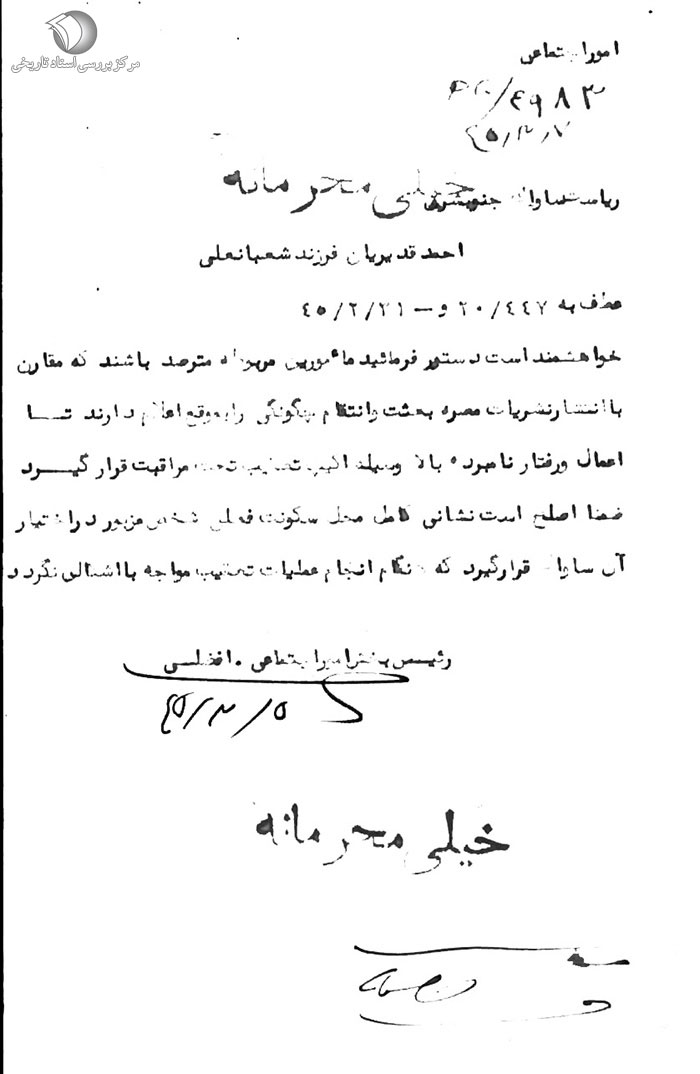 مرکز بررسی اسناد تاریخی
امور اجتماعی
۴۹۸۳/
۴۵/۳/۷
خیلی محرمانه
ریاست ساواک جنوبشرق
احمد قدیریان فرزند شعبانعلی
عطف به ۲۰/٤٤۷ و — ٤٥/۲/۲۱
خواهشمند است دستور فرمائید مأمورین مربوطه مترصد باشند که مقارن
با انتشار نشریات مضره بعثت و انتقام چگونگی را بموقع اعلام دارند تـــا
اعمال ورفتار نامبرده بالا وسیله اکیپ تعقیب تحت مراقبت قرار گیـــرد
ضمنا اصلح است نشانی کامل محل سکونت فعلی شخص مزبور در اختیار
آن ساواک قرارگیرد که هنگام انجام عملیات تعقیب مواجه با اشکالی نگردد
رئیس بخش امور اجتماعی . افضلی
۴۵/۳/۵
خیلی محرمانه